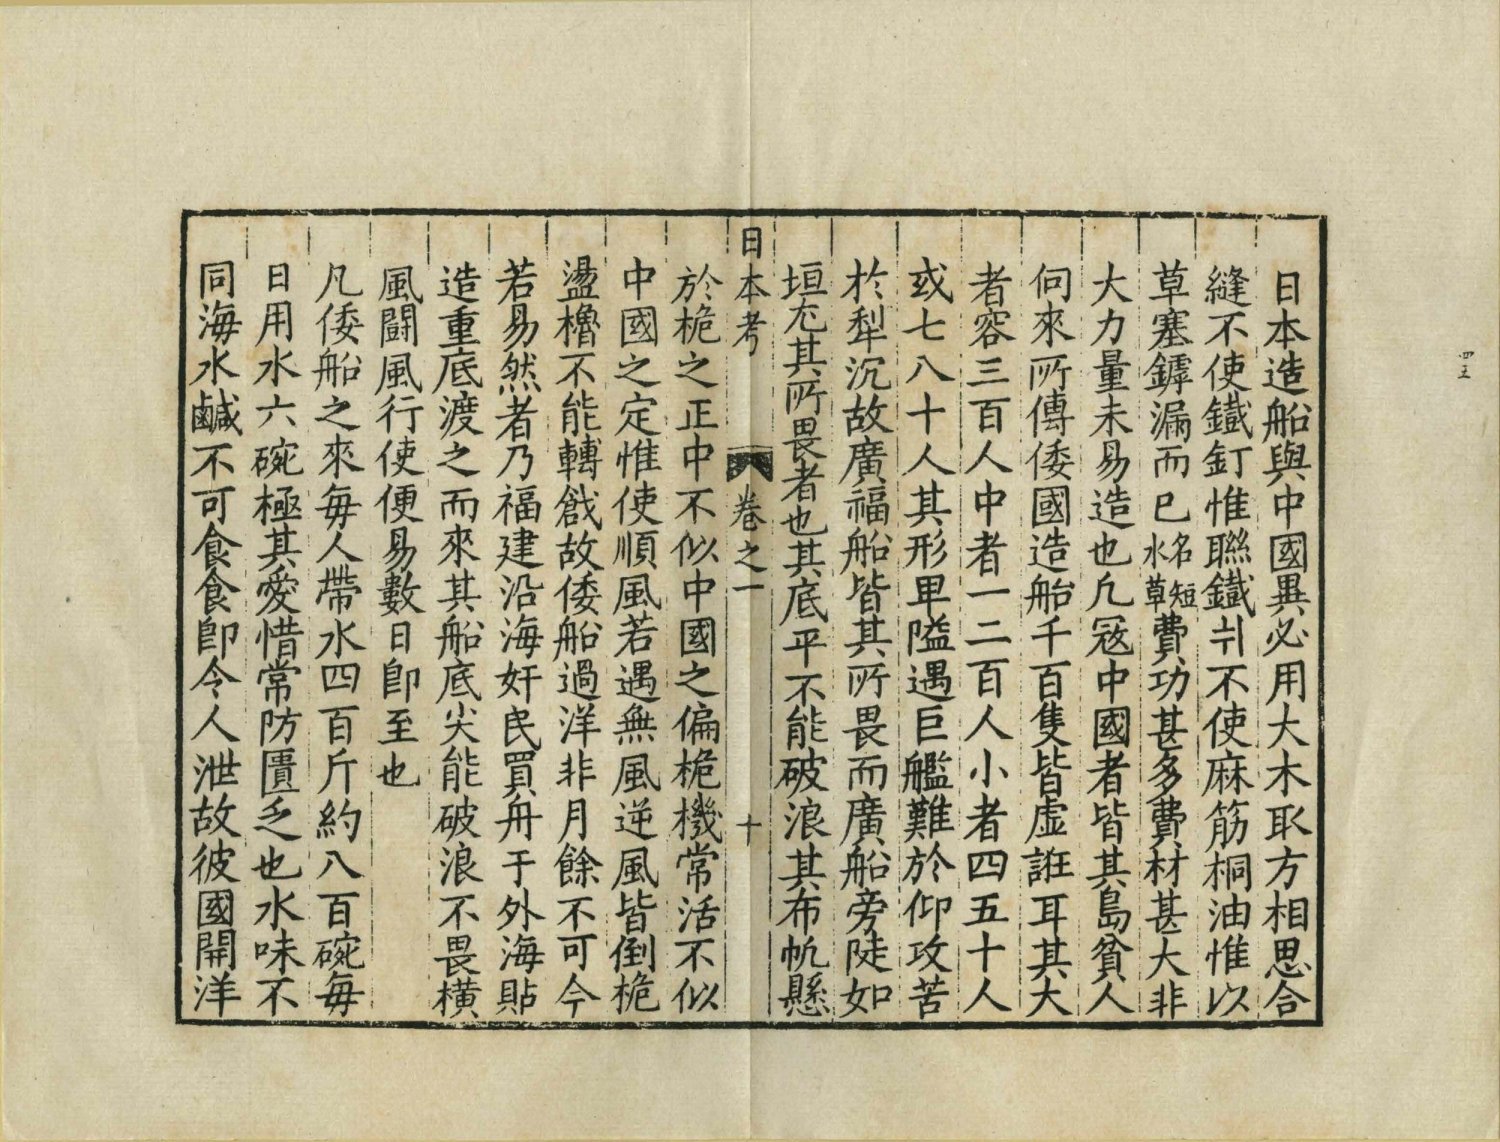 日本造船與中國異必用大木取方相思合
縫不使鐵釘惟聯鐵片不使麻筋桐油惟以
草塞罅漏而已名短水草費功甚多費材甚大非
大力量未易造也凡寇中國者皆其島貧人
伺來所傳倭國造船千百隻皆虛誑耳其大
者容三百人中者一二百人小者四五十人
或七八十人其形卑隘遇巨艦難於仰攻苦
於犁沉故廣福船皆其所畏而廣船旁陡如
垣尤其所畏者也其底平不能破浪其布帆懸
日本考 卷之一 十
於桅之正中不似中國之偏桅機常活不似
中國之定惟使順風若遇無風逆風皆倒桅
盪櫓不能轉戧故倭船過洋非月餘不可今
若易然者乃福建沿海奸民買舟于外海貼
造重底渡之而來其船底尖能破浪不畏橫
風鬪風行使便易數日卽至也
凡倭船之來每人帶水四百斤約八百碗每
日用水六碗極其愛惜常防匱乏也水味不
同海水鹹不可食食卽令人泄故彼國開洋
四五